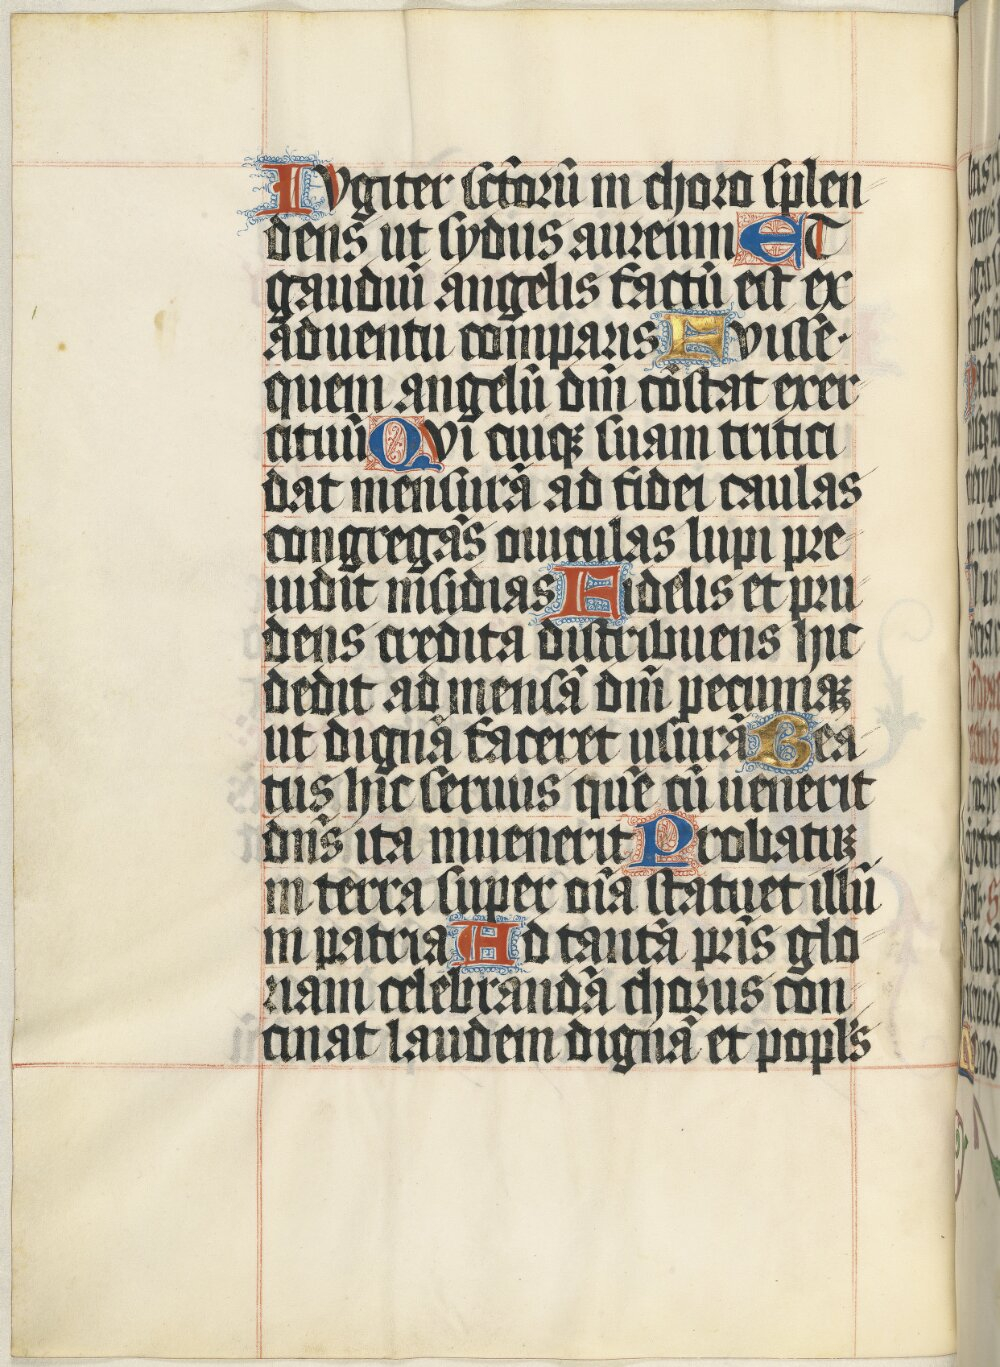 IVgiter sctorũ in choro splen
dens ut sydus aureum ET
gaudiũ angelis factũ est ex
aduentu comparis Fvisse·
quem angelũ dñi cõstat exer
cituũ QVi cuiqꝫ suam tritici
dat mensurã ad fidei caulas
congregãs ouiculas lupi pre
uidit insidias Fidelis et pru
dens credita distribuens hic
dedit ad mensã dñi pecuniaꝝ
ut dignã faceret usurã Bea
tus hic seruus quẽ cũ uenerit
dñs ita inuenerit Probatur
in terra super oĩa statuet illũ
in patria Ad tantã pr̃is glo
riam celebrandã chorus con
cinat laudem dignã et popl's